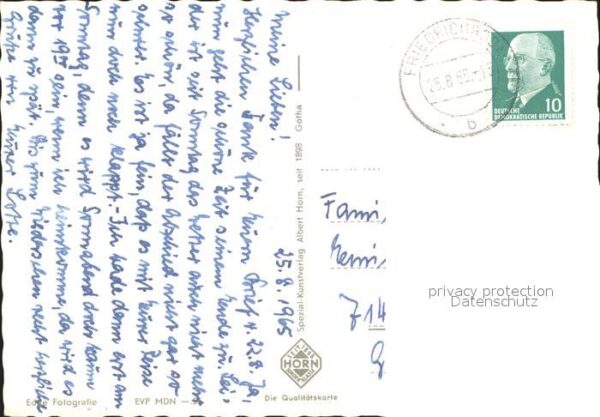 25.8.1965
Meine Lieben!
Herzlichen Dank für Euern Brief v. 22.8. Ja,
nun geht die schöne Zeit ihrem Ende zu. Lei-
der ist seit Sonntag das Wetter auch nicht mehr
so schön, da fällt der Abschied nicht gar so
schwer. Es ist ja fein, daß es mit Eurer Reise
nun doch noch klappt. Ich habe dann erst am
Sonntag, denn es wird Sonnabend doch kaum
vor 19 sein, wenn ich heimkomme, da wird es
dann zu spät. Bis zum Wiedersehen recht herzliche
Grüße von Eurer Lotte.
Echte Fotografie EVP MDN
Spezial-Kunstverlag Albert Horn, seit 1898 Gotha
SEIT 1898
HORN
GOTHA
Die Qualitätskarte
Fami
714
FRIEDRICH
25.8.65
b
10
DEUTSCHE
DEMOKRATISCHE REPUBLIK
privacy protection
Datenschutz